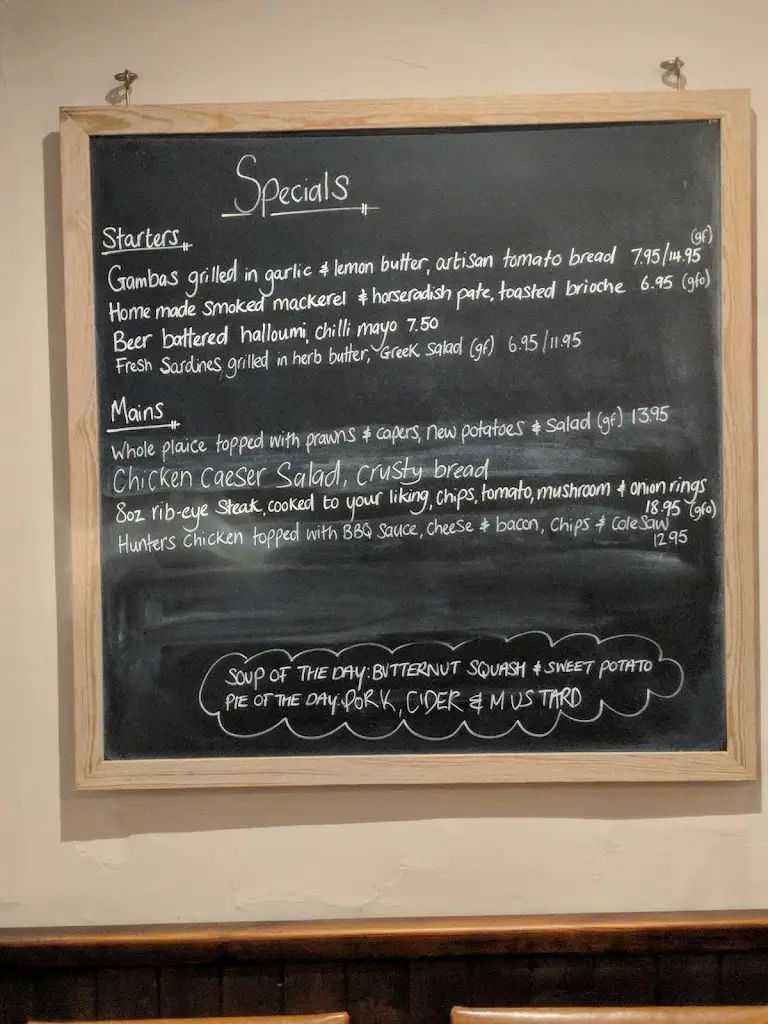 Specials
Starters
(gf)
Gambas grilled in garlic & lemon butter, artisan tomato bread 7.95/14.95
Home made smoked mackerel & horseradish pate, toasted brioche 6.95 (gfo)
Beer battered halloumi, chilli mayo 7.50
Fresh Sardines grilled in herb butter, Greek salad (gf) 6.95/11.95
Mains
Whole plaice topped with prawns & capers, new potatoes & Salad (gf) 13.95
Chicken Caeser Salad, Crusty bread
8oz rib-eye Steak, cooked to your liking, chips, tomato, mushroom & onion rings
18.95 (gfo)
Hunters Chicken topped with BBQ Sauce, cheese & bacon, Chips & Coleslaw
12.95
SOUP OF THE DAY: BUTTERNUT SQUASH & SWEET POTATO
PIE OF THE DAY: PORK, CIDER & MUSTARD